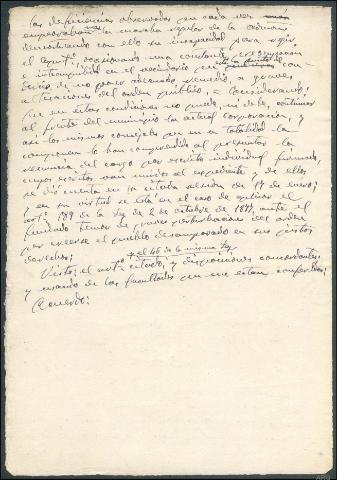 las deficiencias observadas en cada vez
emporaban la marcha regular de la
demostrando con ello su incapacidad para regir
el aquel; ocasionando una constante
e intranquilidad en el vecindario
de no poner adecuado remedio, a graves
alteraciones del orden público, = Considerando:
que en estas condiciones no puede, ni debe, continuar
al frente del municipio la actual corporación, y
así los mismos concejales que en su totalidad la
componen lo han comprendido al presentar la
renuncia del cargo por escrito individual firmado,
cuyos escritos van unidos al expediente y de ellos
se dió cuenta en la citada sesión de 17 de enero;
y en su virtud se está en el caso de aplicar el
artº. 189 de la ley de 2 de octubre de 1877, ante el
fundado temor de graves perturbaciones del orden
por creerse el pueblo desamparado en sus justos
derechos;
y el 46 de la misma ley
Visto: el artº citado, y disposiciones concordantes
y usando de las facultades que me están conferidas;
Acuerdo:
ARG